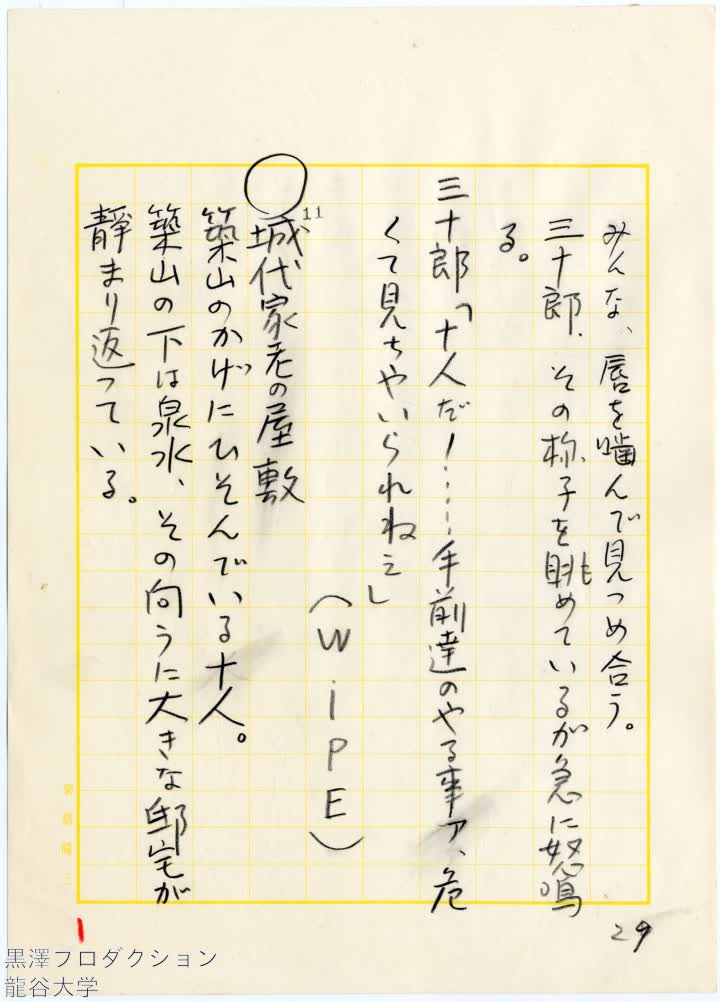 みんな、唇を噛んで見つめ合う。
三十郎、その様子を眺めているが急に怒鳴
る。
三十郎「十人だ！……手前達のやる事ア、危
くて見ちゃいられねえ」
（WiPE）
11
○城代家老の屋敷
築山のかげにひそんでいる十人。
築山の下は泉水、その向うに大きな邸宅が
静まり返っている。
29
1
黒澤プロダクション
龍谷大学